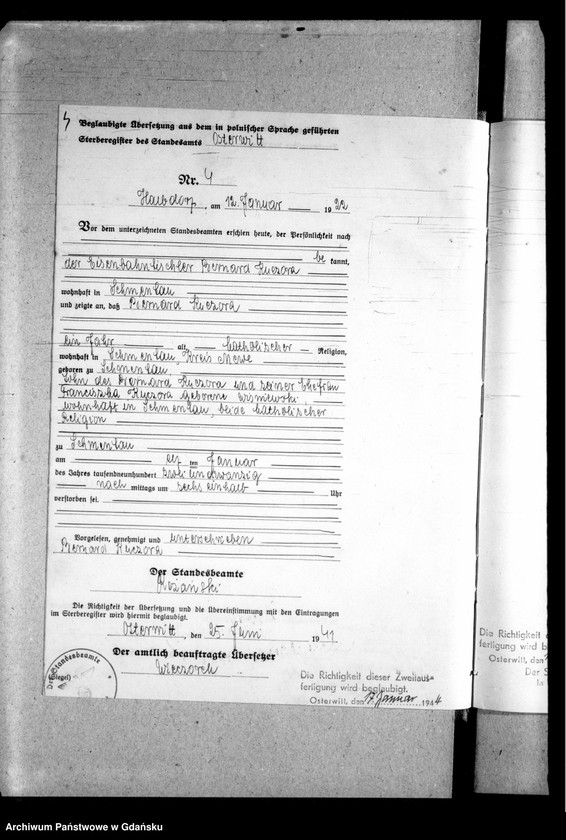 4
Beglaubigte Übersetzung aus dem in polnischer Sprache geführten
Sterberegister des Standesamts Osterwitt
Nr. 4
am 12. Januar 1922
Vor dem unterzeichneten Standesbeamten erschien heute, der Persönlichkeit nach
be kannt,
der Eisenbahntischler Bernard Kuczora
wohnhaft in Schmentau
und zeigte an, daß Bernard Kuczora
ein Jahr alt, katholischer Religion,
wohnhaft in Schmentau, Kreis Mewe
geboren zu Schmentau,
Sohn des Bernard Kuczora und seiner Ehefrau
Franciszka Kuczora geborene Wisniewski,
wohnhaft in Schmentau, beide katholischer
Religion
zu Schmentau
am elf ten Januar
des Jahres tausendneunhundert zweiundzwanzig
nach mittags um sechs einhalb Uhr
verstorben sei.
Vorgelesen, genehmigt und unterschrieben
Bernard Kuczora
Der Standesbeamte
Die Richtigkeit der Übersetzung und die Übereinstimmung mit den Eintragungen
im Sterberegister wird hiermit beglaubigt.
Osterwitt, den 25. Juni 1941
Der amtlich beauftragte Übersetzer
Wieczorek
Der Standesbeamte
(Siegel)
Die Richtigkeit dieser Zweitaus-
fertigung wird beglaubigt.
Osterwitt, den 17. Januar 1944
Die Richtigkeit
fertigung wird b
Osterwitt, den
Der S
In
Archiwum Państwowe w Gdańsku